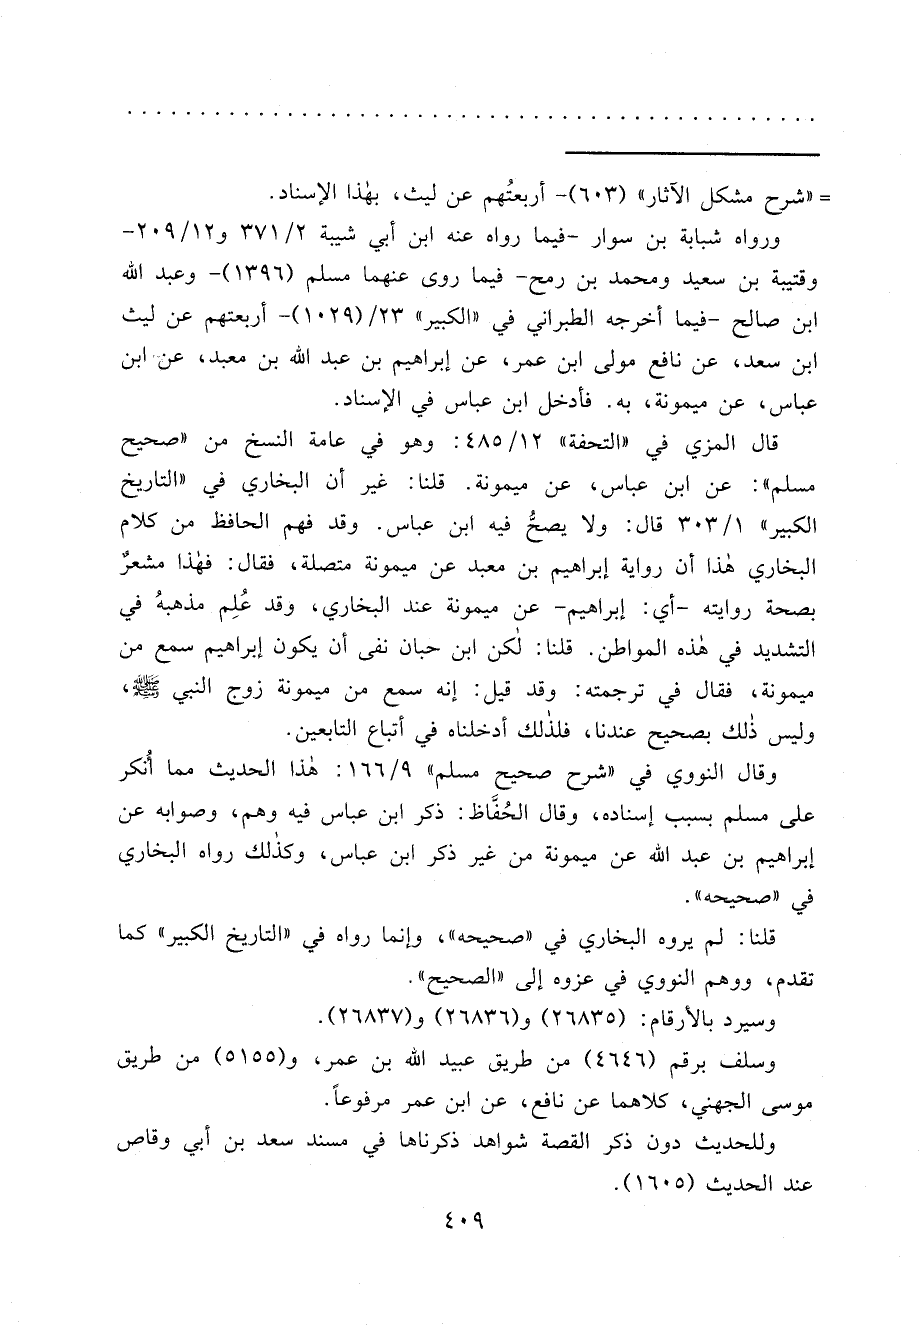 = «شرح مشكل الآثار» (٦٠٣)- أربعتُهم عن ليث، بهٰذا الإسناد.
ورواه شبابة بن سوار -فيما رواه عنه ابن أبي شيبة ٣٧١/٢ و٢٠٩/١٢-
وقتيبة بن سعيد ومحمد بن رمح- فيما روى عنهما مسلم (١٣٩٦)- وعبد الله
ابن صالح -فيما أخرجه الطبراني في «الكبير» ٢٣/(١٠٢٩)- أربعتهم عن ليث
ابن سعد، عن نافع مولى ابن عمر، عن إبراهيم بن عبد الله بن معبد، عن ابن
عباس، عن ميمونة، به. فأدخل ابن عباس في الإسناد.
قال المزي في «التحفة» ٤٨٥/١٢: وهو في عامة النسخ من «صحيح
مسلم»: عن ابن عباس، عن ميمونة. قلنا: غير أن البخاري في «التاريخ
الكبير» ٣٠٣/١ قال: ولا يصحُّ فيه ابن عباس. وقد فهم الحافظ من كلام
البخاري هٰذا أن رواية إبراهيم بن معبد عن ميمونة متصلة، فقال: فهٰذا مشعرٌ
بصحة روايته -أي: إبراهيم- عن ميمونة عند البخاري، وقد عُلِم مذهبهُ في
التشديد في هٰذه المواطن. قلنا: لٰكن ابن حبان نفى أن يكون إبراهيم سمع من
ميمونة، فقال في ترجمته: وقد قيل: إنه سمع من ميمونة زوج النبي ﷺ،
وليس ذٰلك بصحيح عندنا، فلذٰلك أدخلناه في أتباع التابعين.
وقال النووي في «شرح صحيح مسلم» ١٦٦/٩: هٰذا الحديث مما أُنكر
على مسلم بسبب إسناده، وقال الحُفَّاظ: ذكر ابن عباس فيه وهم، وصوابه عن
إبراهيم بن عبد الله عن ميمونة من غير ذكر ابن عباس، وكذٰلك رواه البخاري
في «صحيحه».
قلنا: لم يروه البخاري في «صحيحه»، وإنما رواه في «التاريخ الكبير» كما
تقدم، ووهم النووي في عزوه إلى «الصحيح».
وسيرد بالأرقام: (٢٦٨٣٥) و(٢٦٨٣٦) و(٢٦٨٣٧).
وسلف برقم (٤٦٤٦) من طريق عبيد الله بن عمر، و(٥١٥٥) من طريق
موسى الجهني، كلاهما عن نافع، عن ابن عمر مرفوعاً.
وللحديث دون ذكر القصة شواهد ذكرناها في مسند سعد بن أبي وقاص
عند الحديث (١٦٠٥).
٤٠٩